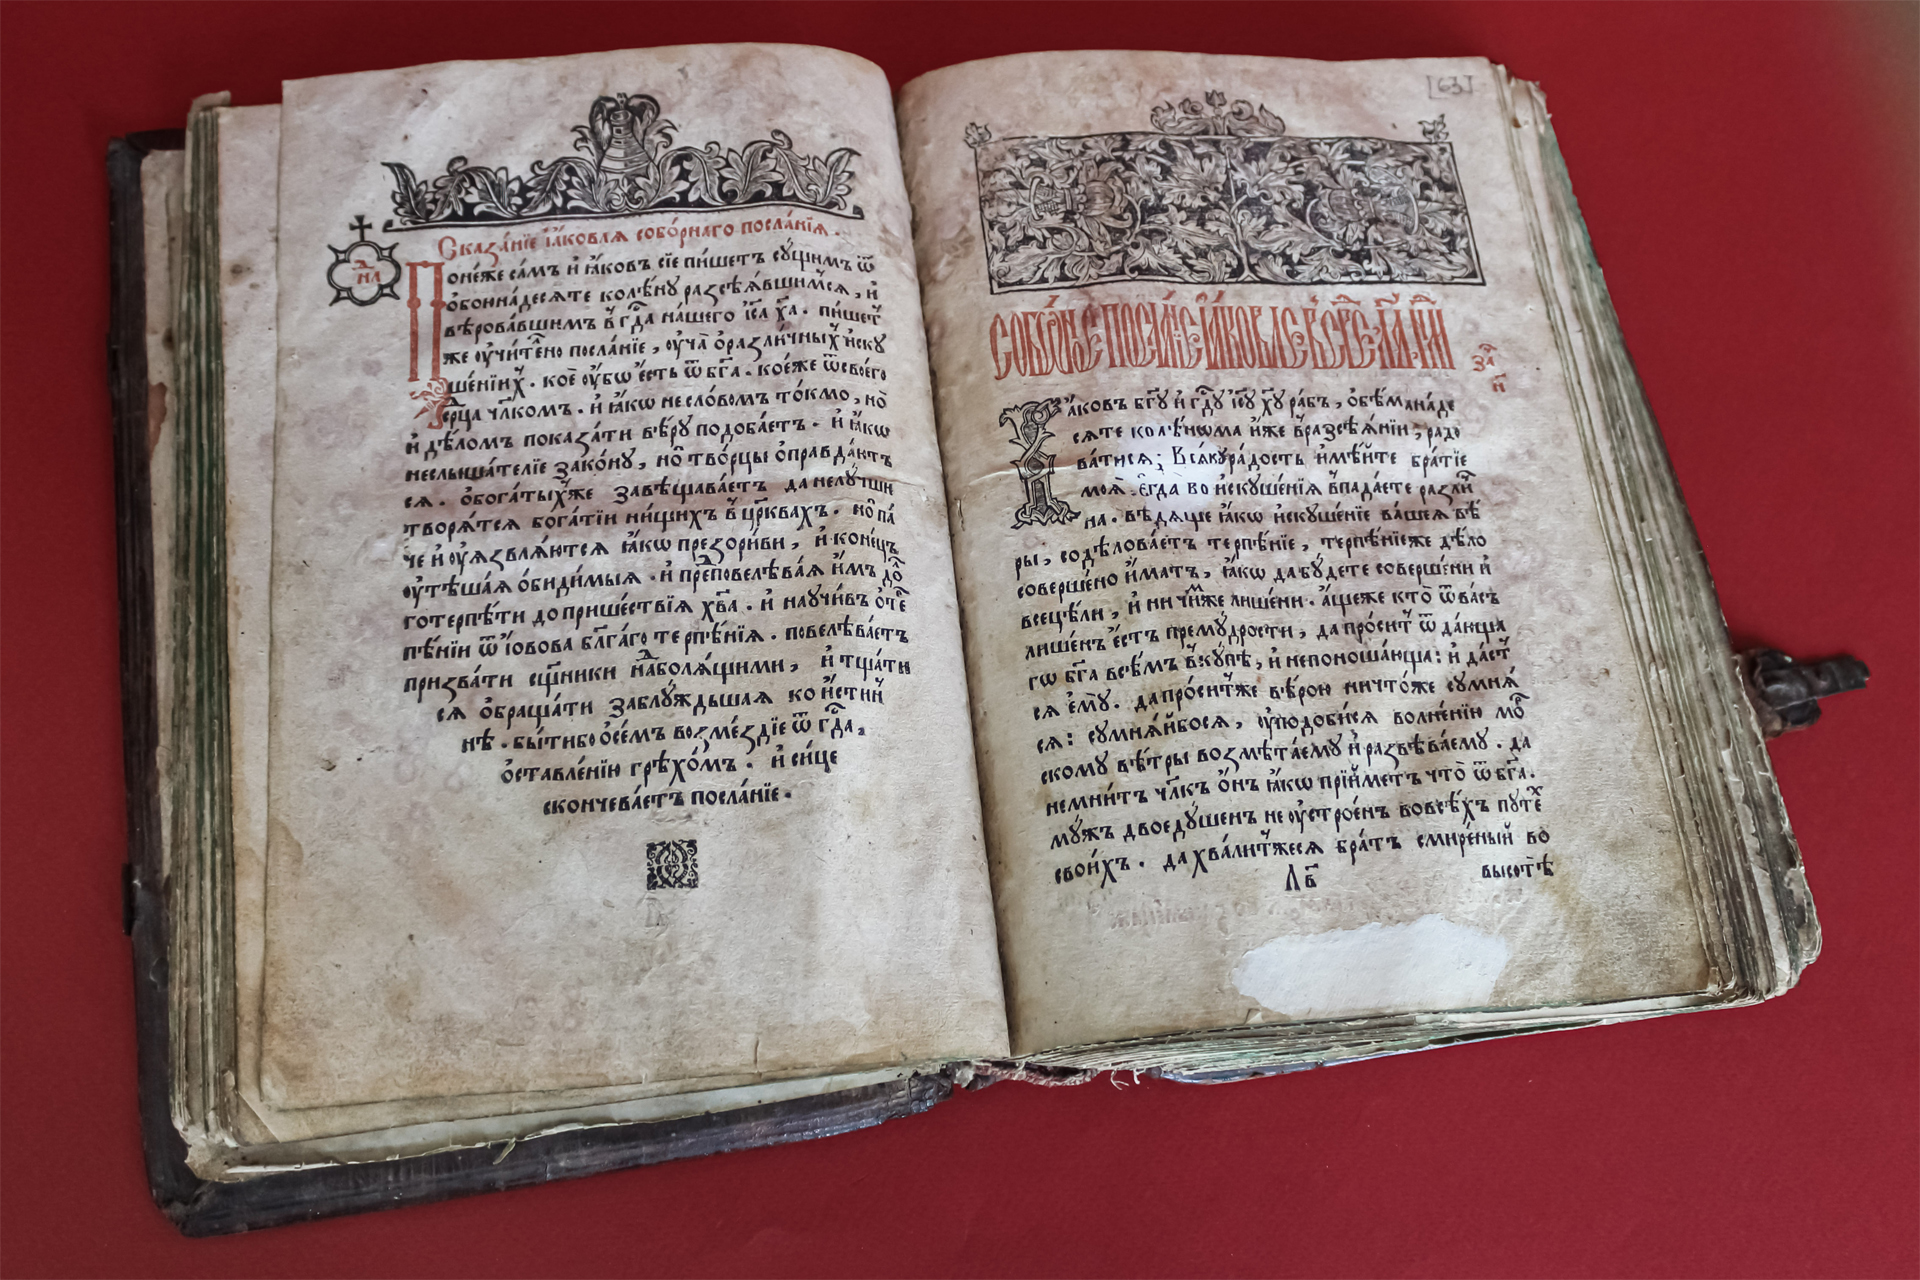 Сказа́нїе іа́ковлѧ собо́рнаго посла́нїѧ .
Поне́же са́мъ и҆ іа́ковъ сїе пи́шетъ су́щимъ ѿ
ѻ҆боюна́десѧте колѣ́ну разсѣ́ѧвшимсѧ , и҆
вѣ́ровавшимъ в̾ гд҇а на́шего і҆с҃а х҃а . пи́шет
же ѹ҆чи́телно посла́нїе , ѹ҆ча̀ ѻ҆ разли́чных и҆ску
ше́нїих . коѐ ѹ҆́бѡ е҆́сть ѿ бг҃а . кое́же ѿ своего̀
се́рдца чл҃комъ . и҆ ꙗ҆́кѡ не сло́вомъ то́кмо , но̀
и҆ дѣ́ломъ показа́ти вѣ́ру подоба́етъ . и҆ ꙗ҆́кѡ
не слы́шателїе зако́ну , но̀ тво́рцы ѻ҆правда́ютъ
сѧ . ѻ҆ бога́тыхже завѣщава́етъ да не лу́чше
творѧ́тсѧ бога́тїи ни́щих в̾ цр҃квахъ . но̀ па
че и҆ ѹ҆ѧзвлѧ́ютсѧ ꙗ҆́кѡ презори́ви , и҆ коне́цъ
ѹ҆тѣша́ѧ ѻ҆би́димыѧ . и҆ преповелѣва́ѧ и҆́мъ до́л
готерпѣ́ти до прише́ствїѧ хв҃а . и҆ научи́въ ѻ҆ те
пѣ́нїи ѿ і҆́овова бл҃га́го терпѣ́нїѧ . повелѣва́етъ
призва́ти сщ҃нники над болѧ́щими , и҆ тща́ти
сѧ ѻ҆браща́ти заблу́ждьшаѧ ко и҆́стин
нѣ . бы́ти бо ѻ҆ се́мъ возме́здїе ѿ гд҇а ,
ѻ҆ставле́нїю грѣхо́мъ . и҆ си́це
сконче́ваетъ посла́нїе .
[63]
за҃
и҃
І҆а́ковъ бг҃у и҆ гд҇у і҆с҃у х҃у ра́бъ , ѻ҆бѣ́манаде
сѧте колѣ́нома и҆́же в̾ разсѣ́ѧнїи , ра́до
ватисѧ ; Всѧ́ку ра́дость и҆мѣ́йте бра́тїе
моѧ̀ . є҆гда̀ во и҆скуше́нїѧ впа́даете разли́ч
на . вѣ́дѧще ꙗ҆́кѡ и҆скуше́нїе ва́шеѧ вѣ́
ры , содѣ́ловаетъ терпѣ́нїе , терпѣ́нїеже дѣ́ло
соверше́но и҆́мать , ꙗ҆́кѡ да бу́дете соверше́ни и҆
всецѣ́ли , и҆ ни чи́мже лише́ни . а҆́щеже кто̀ ѿ ва́съ
лише́нъ е҆́сть прему́дрости , да про́сит ѿ даю́ща
гѡ бг҃а всѣ́мъ вку́пѣ , и҆ не поноша́юща : и҆ да́ст
сѧ е҆му̀ . да про́ситже вѣ́рою ничто́же сумнѧ́
сѧ : сумнѧ́йбосѧ , ѹ҆подо́бисѧ волне́нїю мо́р
скому вѣ́тры возмѣта́ему и҆ развѣва́ему . да
не мни́тъ чл҃къ ѻ҆́нъ ꙗ҆́кѡ прїи́метъ что̀ ѿ бг҃а .
му́жъ двоеду́шенъ не ѹ҆стро́енъ во всѣ́хъ путе́х
свои́хъ . да хва́литжесѧ бра́тъ смире́ный во
л҃в
высотѣ̀